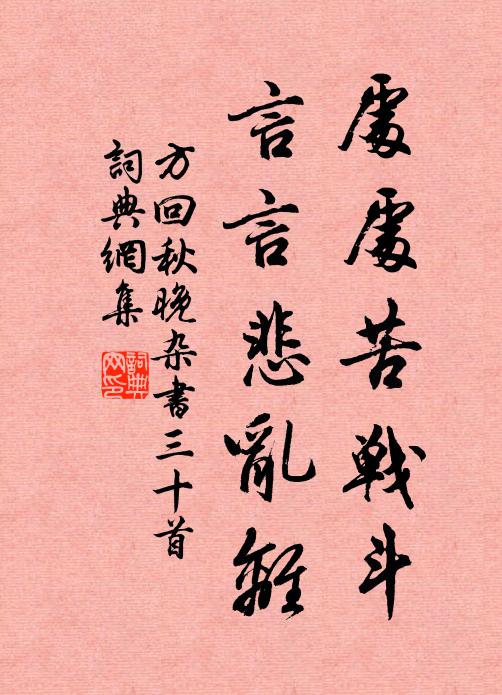 處處苦戰斗
言言悲亂離
方回秋晚杂書三十首
詞典網集
詞典网印